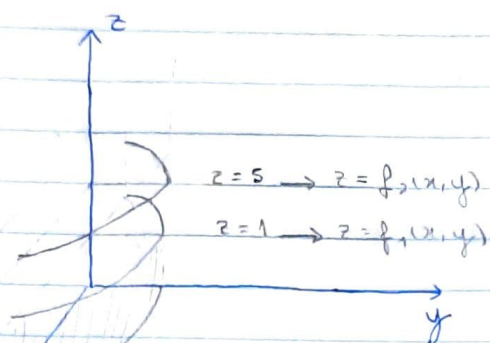 z
z = 5 → z = f₂(x,y)
z = 1 → z = f₁(x,y)
y